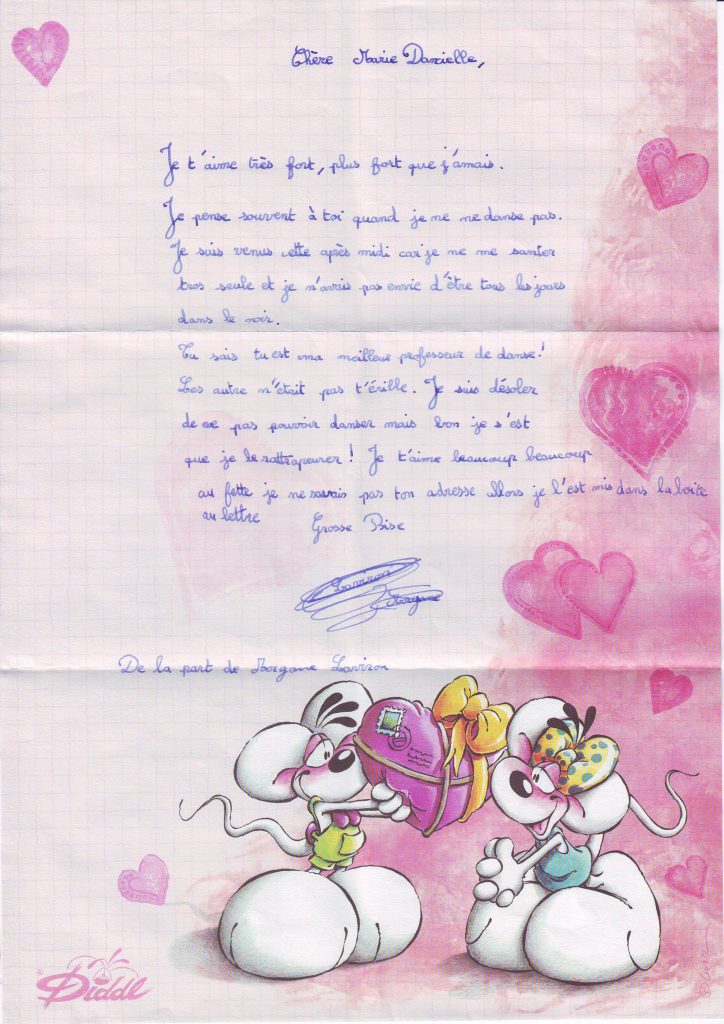 Chère Marie Danielle,
Je t'aime très fort, plus fort que j'amais.
Je pense souvent à toi quand je ne danse pas.
Je suis venus cette après midi car je me me santer
tros seule et je n'avais pas envie d'être tous les jours
dans le noir.
Tu sais tu est ma meilleur professeur de danse!
Les autre n'était pas t'érible. Je suis désoler
de ne pas pouvoir danser mais bon je s'est
que je le rattrapeurer! Je t'aime beaucoup beaucoup
au fette je ne savais pas ton adresse allors je l'est mis dans la boite
au lettre
Grosse Bise
Larriron
Morgane
De la part de Morgane Larriron
Diddl